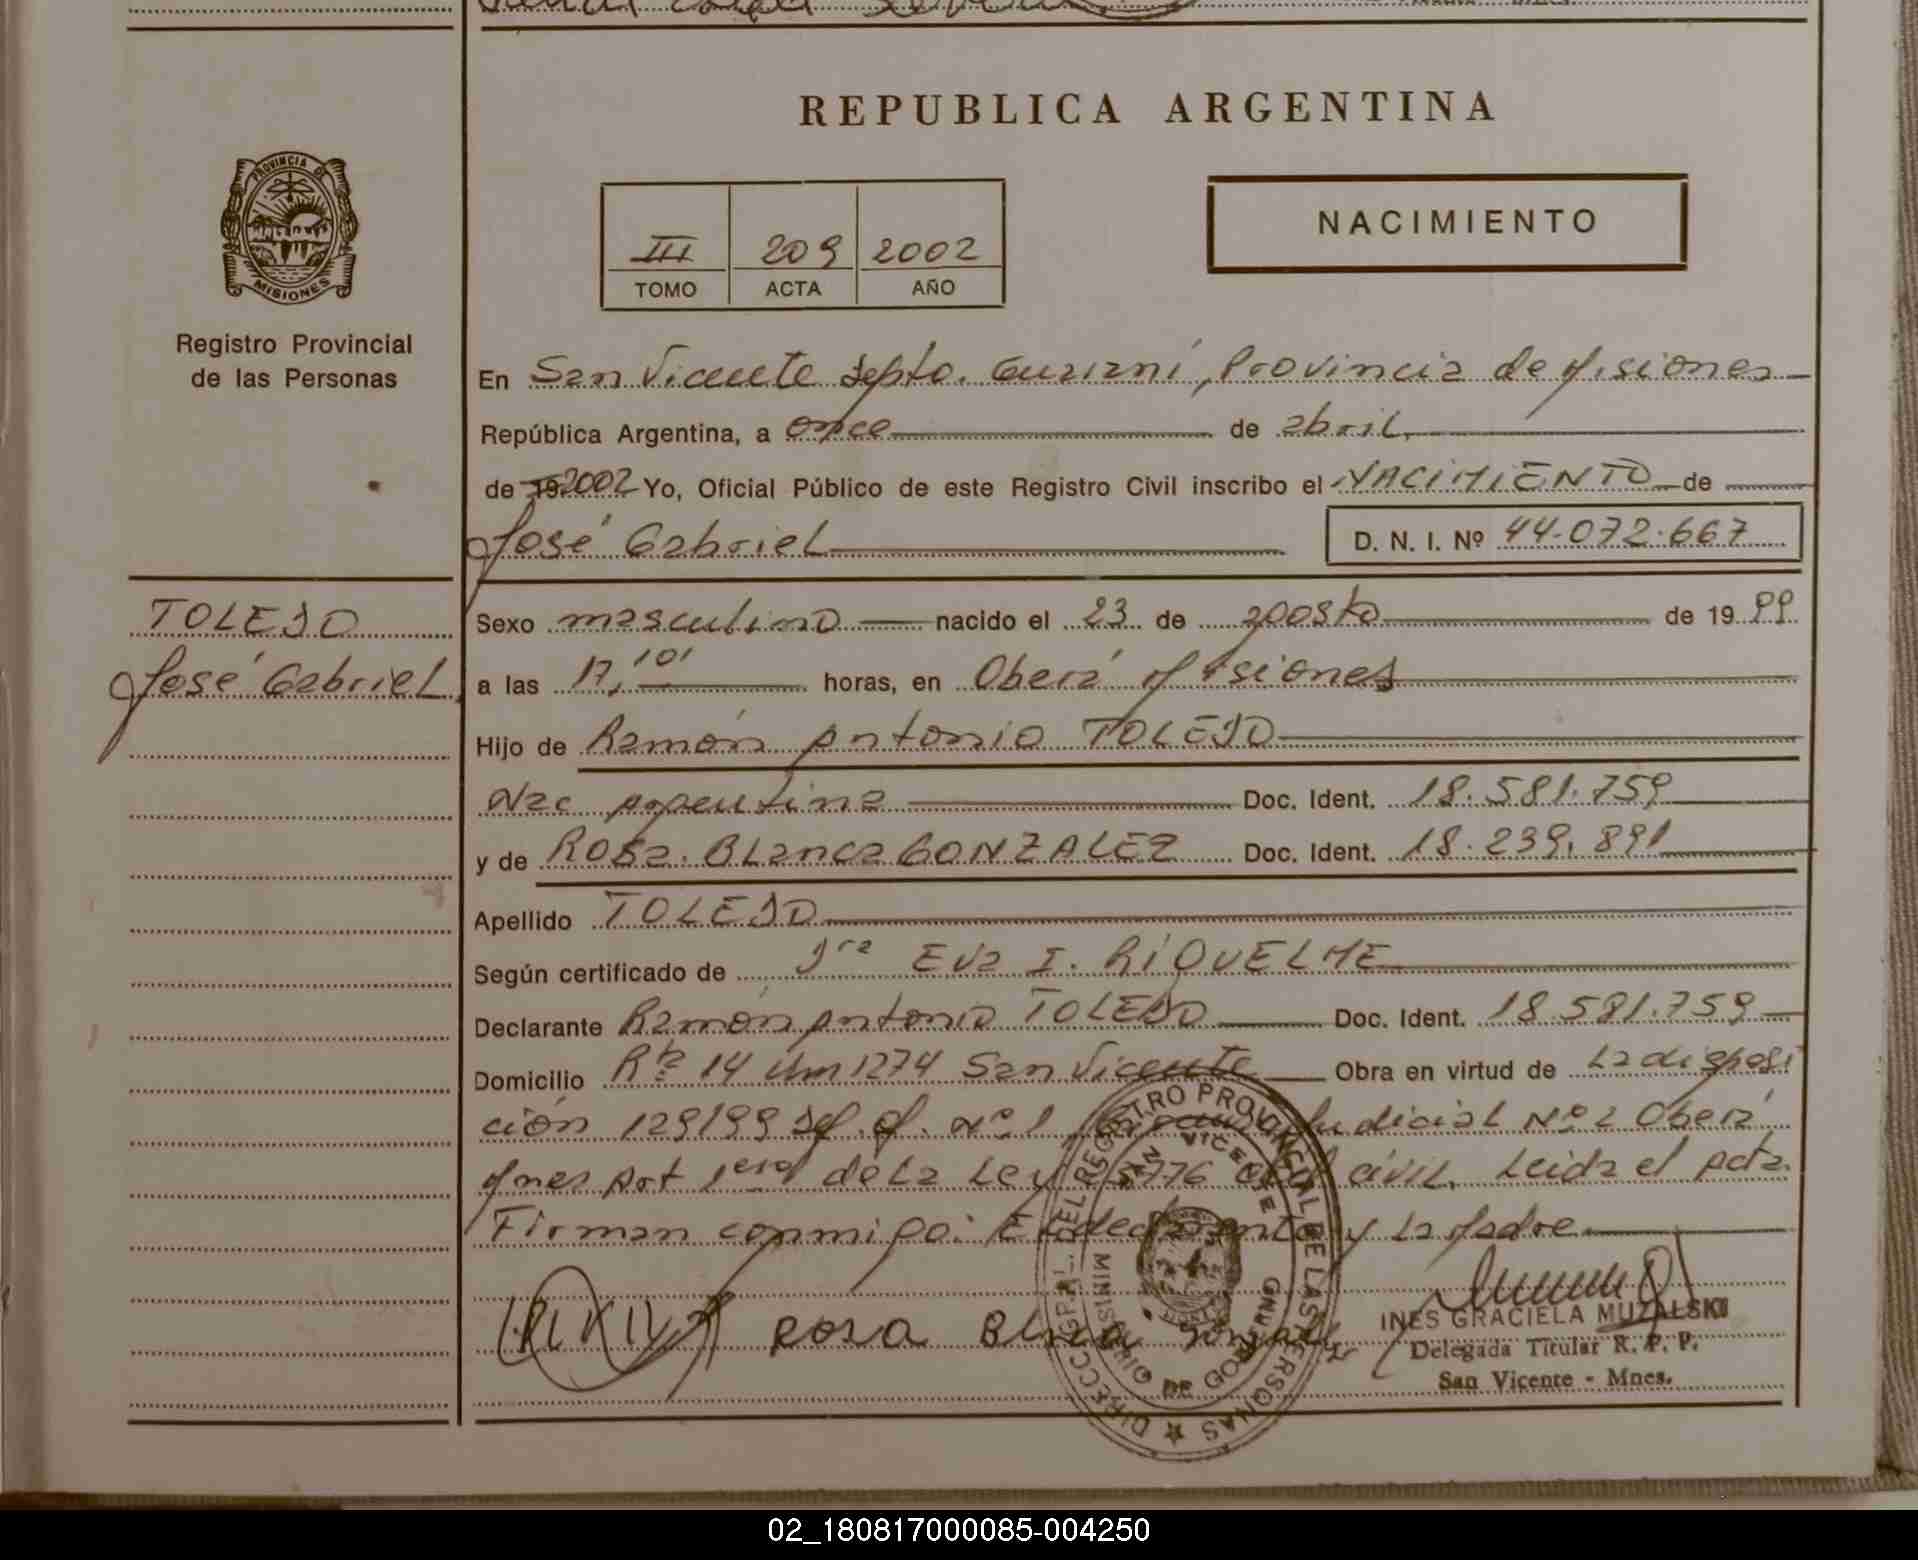 REPUBLICA ARGENTINA
PROVINCIA DE
MISIONES
Registro Provincial
de las Personas
III 209 2002
TOMO ACTA AÑO
NACIMIENTO
En San Vicente Depto. Guaraní, Provincia de Misiones
República Argentina, a once de abril
de 19 2002 Yo, Oficial Público de este Registro Civil inscribo el NACIMIENTO de
José Gabriel D. N. I. Nº 44.072.667
TOLEDO
José Gabriel
Sexo masculino nacido el 23 de agosto de 19 99
a las 17,10 horas, en Oberá Misiones
Hijo de Ramón Antonio TOLEDO
Nac Argentina Doc. Ident. 18.581.759
y de Rosa Blanca GONZALEZ Doc. Ident. 18.239.891
Apellido TOLEDO
Según certificado de Dra Eva I. RIQUELME
Declarante Ramón Antonio TOLEDO Doc. Ident. 18.581.759
Domicilio Rta 14 Km 1274 San Vicente Obra en virtud de La disposi
ción 129/99 Nº 1 Judicial Nº 2 Oberá
Mnes Art 1ero de La Ley civil. Leida el Acta.
Firman conmigo: El declarante y La Madre
Rosa Blanca
INES GRACIELA MUZALSKI
Delegada Titular R. P. P.
San Vicente - Mnes.
DIRECC. GRAL. DEL REGISTRO PROVINCIAL DE LAS PERSONAS
MINISTERIO DE GOBIERNO
SAN VICENTE
02_180817000085-004250